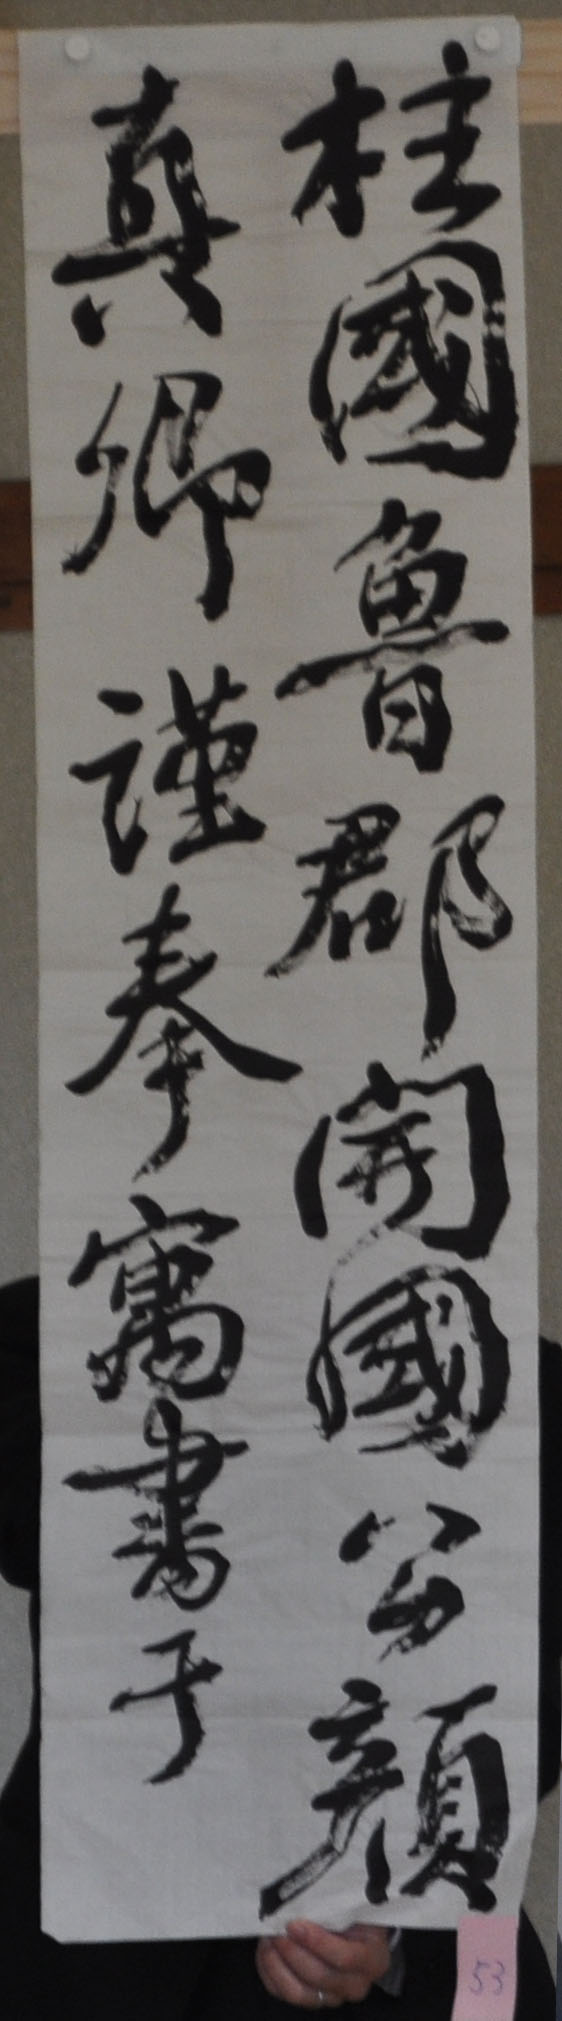 柱國魯郡開國公顔
真卿謹奉寓書于
53